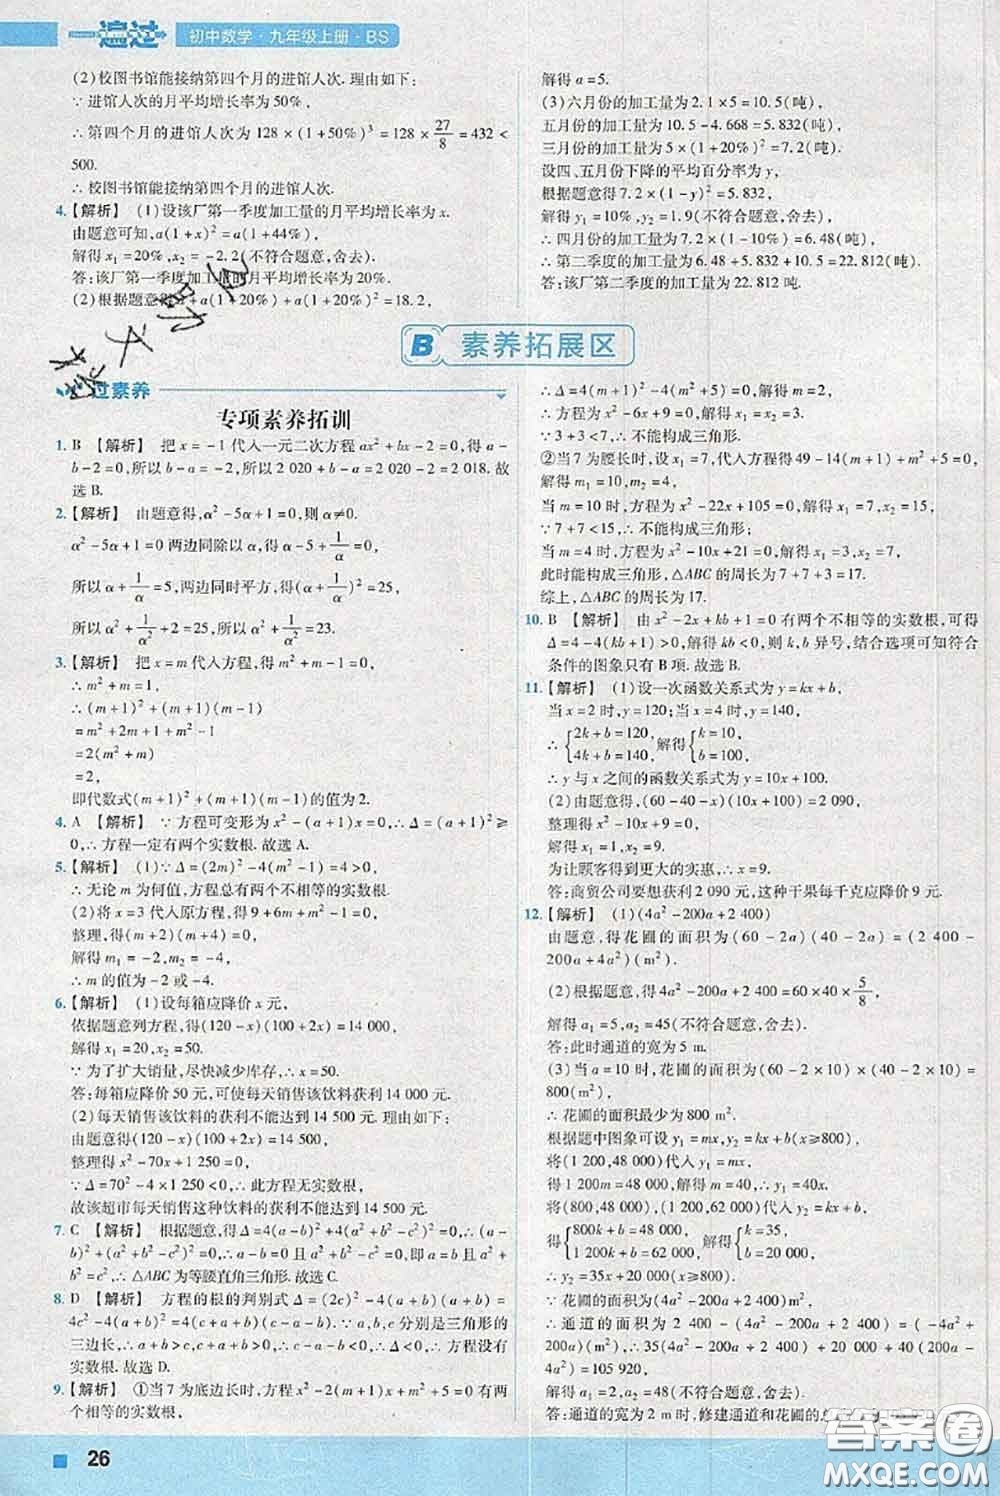 一遍过 初中数学·九年级上册·BS
(2)校图书馆能接纳第四个月的进馆人次.理由如下:
∵进馆人次的月平均增长率为50%,
∴第四个月的进馆人次为128×(1+50%)³=128×27/8=432<
500.
∴校图书馆能接纳第四个月的进馆人次.
4.【解析】 (1)设该厂第一季度加工量的月平均增长率为x.
由题意可知,a(1+x)²=a(1+44%),
解得x₁=20%,x₂=-2.2(不符合题意,舍去).
答:该厂第一季度加工量的月平均增长率为20%.
(2)根据题意得a+a(1+20%)+a(1+20%)²=18.2,
解得a=5.
(3)六月份的加工量为2.1×5=10.5(吨),
五月份的加工量为10.5-4.668=5.832(吨),
三月份的加工量为5×(1+20%)²=7.2(吨).
设四、五月份下降的平均百分率为y,
根据题意得7.2×(1-y)²=5.832,
解得y₁=10%,y₂=1.9(不符合题意,舍去),
∴四月份的加工量为7.2×(1-10%)=6.48(吨),
∴第二季度的加工量为6.48+5.832+10.5=22.812(吨).
答:该厂第二季度的加工量为22.812吨.
B 素养拓展区
过素养
专项素养拓训
1. B 【解析】 把x=-1代入一元二次方程ax²+bx-2=0,得a-
b-2=0,所以b-a=-2,所以2 020+b-a=2 020-2=2 018.故
选B.
2.【解析】 由题意得,α²-5α+1=0,则α≠0.
α²-5α+1=0两边同除以α,得α-5+1/α=0,
所以α+1/α=5,两边同时平方,得(α+1/α)²=25,
所以α²+1/α²+2=25,所以α²+1/α²=23.
3.【解析】 把x=m代入方程,得m²+m-1=0,
∴m²+m=1,
∴(m+1)²+(m+1)(m-1)
=m²+2m+1+m²-1
=2(m²+m)
=2,
即代数式(m+1)²+(m+1)(m-1)的值为2.
4. A 【解析】 ∵方程可变形为x²-(a+1)x=0,∴Δ=(a+1)²≥
0,∴方程一定有两个实数根.故选A.
5.【解析】 (1)∵Δ=(2m)²-4(m²-1)=4>0,
∴无论m为何值,方程总有两个不相等的实数根.
(2)将x=3代入原方程,得9+6m+m²-1=0,
整理,得(m+2)(m+4)=0,
解得m₁=-2,m₂=-4,
∴m的值为-2或-4.
6.【解析】 (1)设每箱应降价x元,
依据题意列方程,得(120-x)(100+2x)=14 000,
解得x₁=20,x₂=50.
∵为了扩大销量,尽快减少库存,∴x=50.
答:每箱应降价50元,可使每天销售该饮料获利14 000元.
(2)每天销售该饮料的获利不能达到14 500元.理由如下:
由题意得(120-x)(100+2x)=14 500,
整理得x²-70x+1 250=0,
∵Δ=70²-4×1 250<0,∴此方程无实数根,
故该超市每天销售这种饮料的获利不能达到14 500元.
7. C 【解析】 根据题意,得Δ=4(a-b)²+4(a²+b²-c²)=0,∴(a-
b)²+(a²+b²-c²)=0,∴a-b=0且a²+b²-c²=0,即a=b且a²+
b²=c²,∴△ABC为等腰直角三角形.故选C.
8. D 【解析】 方程的根的判别式Δ=(2c)²-4(a+b)(a+b)=
4c²-4(a+b)²=4(c+a+b)(c-a-b).∵a,b,c分别是三角形的
三边长,∴a+b>c,c+a+b>0,∴c-a-b<0,∴Δ<0,∴方程没有
实数根.故选D.
9.【解析】 ①当7为底边长时,方程x²-2(m+1)x+m²+5=0有
两个相等的实数根,
∴Δ=4(m+1)²-4(m²+5)=0,解得m=2,
∴方程为x²-6x+9=0,解得x₁=x₂=3.
∵3+3<7,∴不能构成三角形.
②当7为腰长时,设x₁=7,代入方程得49-14(m+1)+m²+5=0,
解得m₁=10,m₂=4,
当m=10时,方程为x²-22x+105=0,解得x₁=7,x₂=15,
∵7+7<15,∴不能构成三角形;
当m=4时,方程为x²-10x+21=0,解得x₁=3,x₂=7,
此时能构成三角形,△ABC的周长为7+7+3=17.
综上,△ABC的周长为17.
10. B 【解析】 由x²-2x+kb+1=0有两个不相等的实数根,可得
Δ=4-4(kb+1)>0,解得kb<0,则k,b异号,结合选项可知符合
条件的图象只有B项.故选B.
11.【解析】 (1)设一次函数关系式为y=kx+b,
当x=2时,y=120;当x=4时,y=140,
∴{2k+b=120, 4k+b=140, 解得{k=10, b=100,
∴y与x之间的函数关系式为y=10x+100.
(2)由题意得,(60-40-x)(10x+100)=2 090,
整理得x²-10x+9=0,
解得x₁=1,x₂=9.
为让顾客得到更大的实惠,∴x=9.
答:商贸公司要想获利2 090元,这种干果每千克应降价9元.
12.【解析】 (1)(4a²-200a+2 400)
由题意,得花圃的面积为(60-2a)(40-2a)=(2 400-
200a+4a²)(m²).
(2)根据题意,得4a²-200a+2 400=60×40×5/8,
解得a₁=5,a₂=45(不符合题意,舍去).
答:此时通道的宽为5 m.
(3)当a=10时,花圃的面积为(60-2×10)×(40-2×10)=
800(m²),
∴花圃的面积最少为800 m².
根据题中图象可设y₁=mx,y₂=kx+b(x≥800),
将(1 200,48 000)代入y₁=mx,
得1 200m=48 000,解得m=40,∴y₁=40x.
将(800,48 000),(1 200,62 000)代入y₂=kx+b,
得{800k+b=48 000, 1 200k+b=62 000, 解得{k=35, b=20 000,
∴y₂=35x+20 000(x≥800).
∵花圃的面积为(4a²-200a+2 400)m²,
∴通道的面积为2 400-(4a²-200a+2 400)=(-4a²+
200a)(m²),∴35(4a²-200a+2 400)+20 000+40(-4a²+200a)=105 920,
解得a₁=2,a₂=48(不符合题意,舍去).
答:通道的宽为2 m时,修建通道和花圃的总
26
答案圈
MXQE.COM